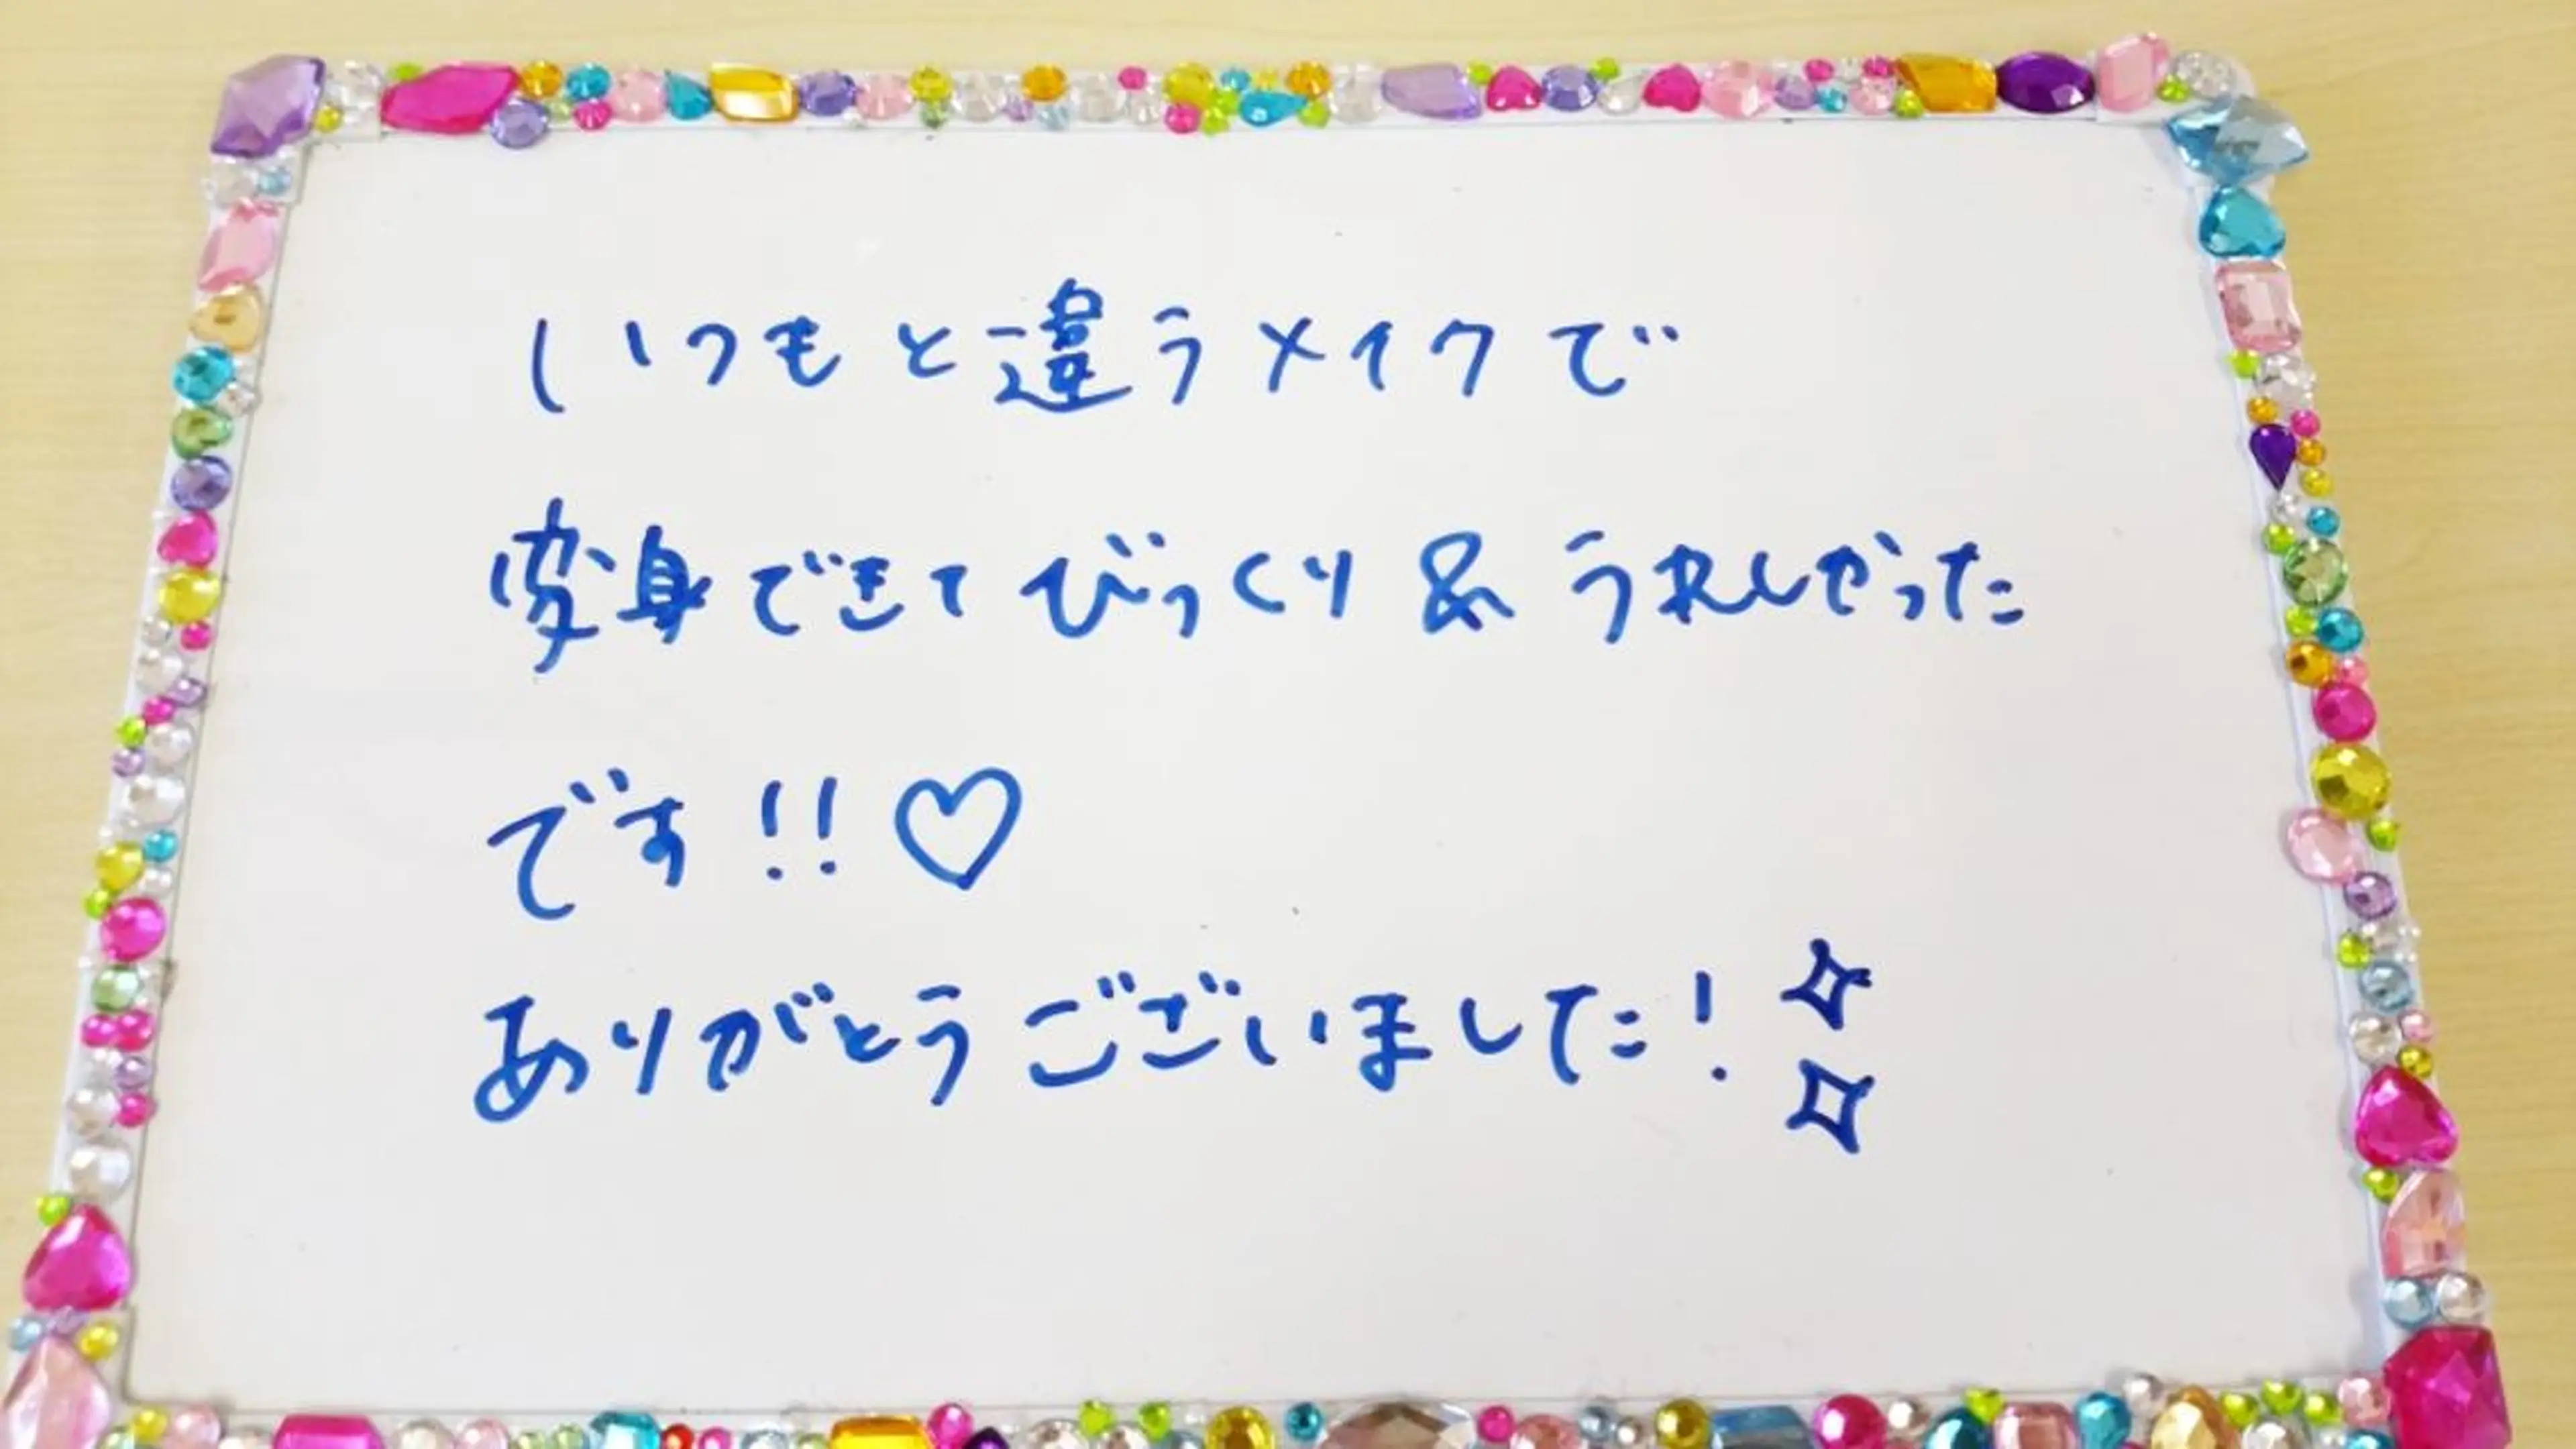 いつもと違うメイクで
変身できてびっくり&うれしかった
です!!♡
ありがとうございました!